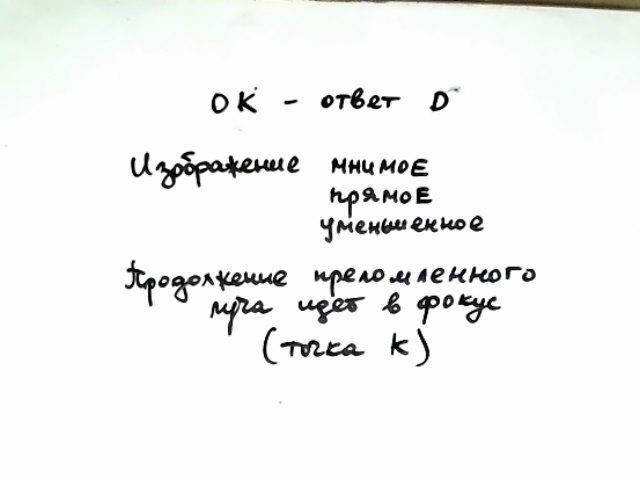 ОК - ответ D
Изображение мнимое
прямое
уменьшенное
Продолжение преломленного
луча идет в фокус
(точка К)